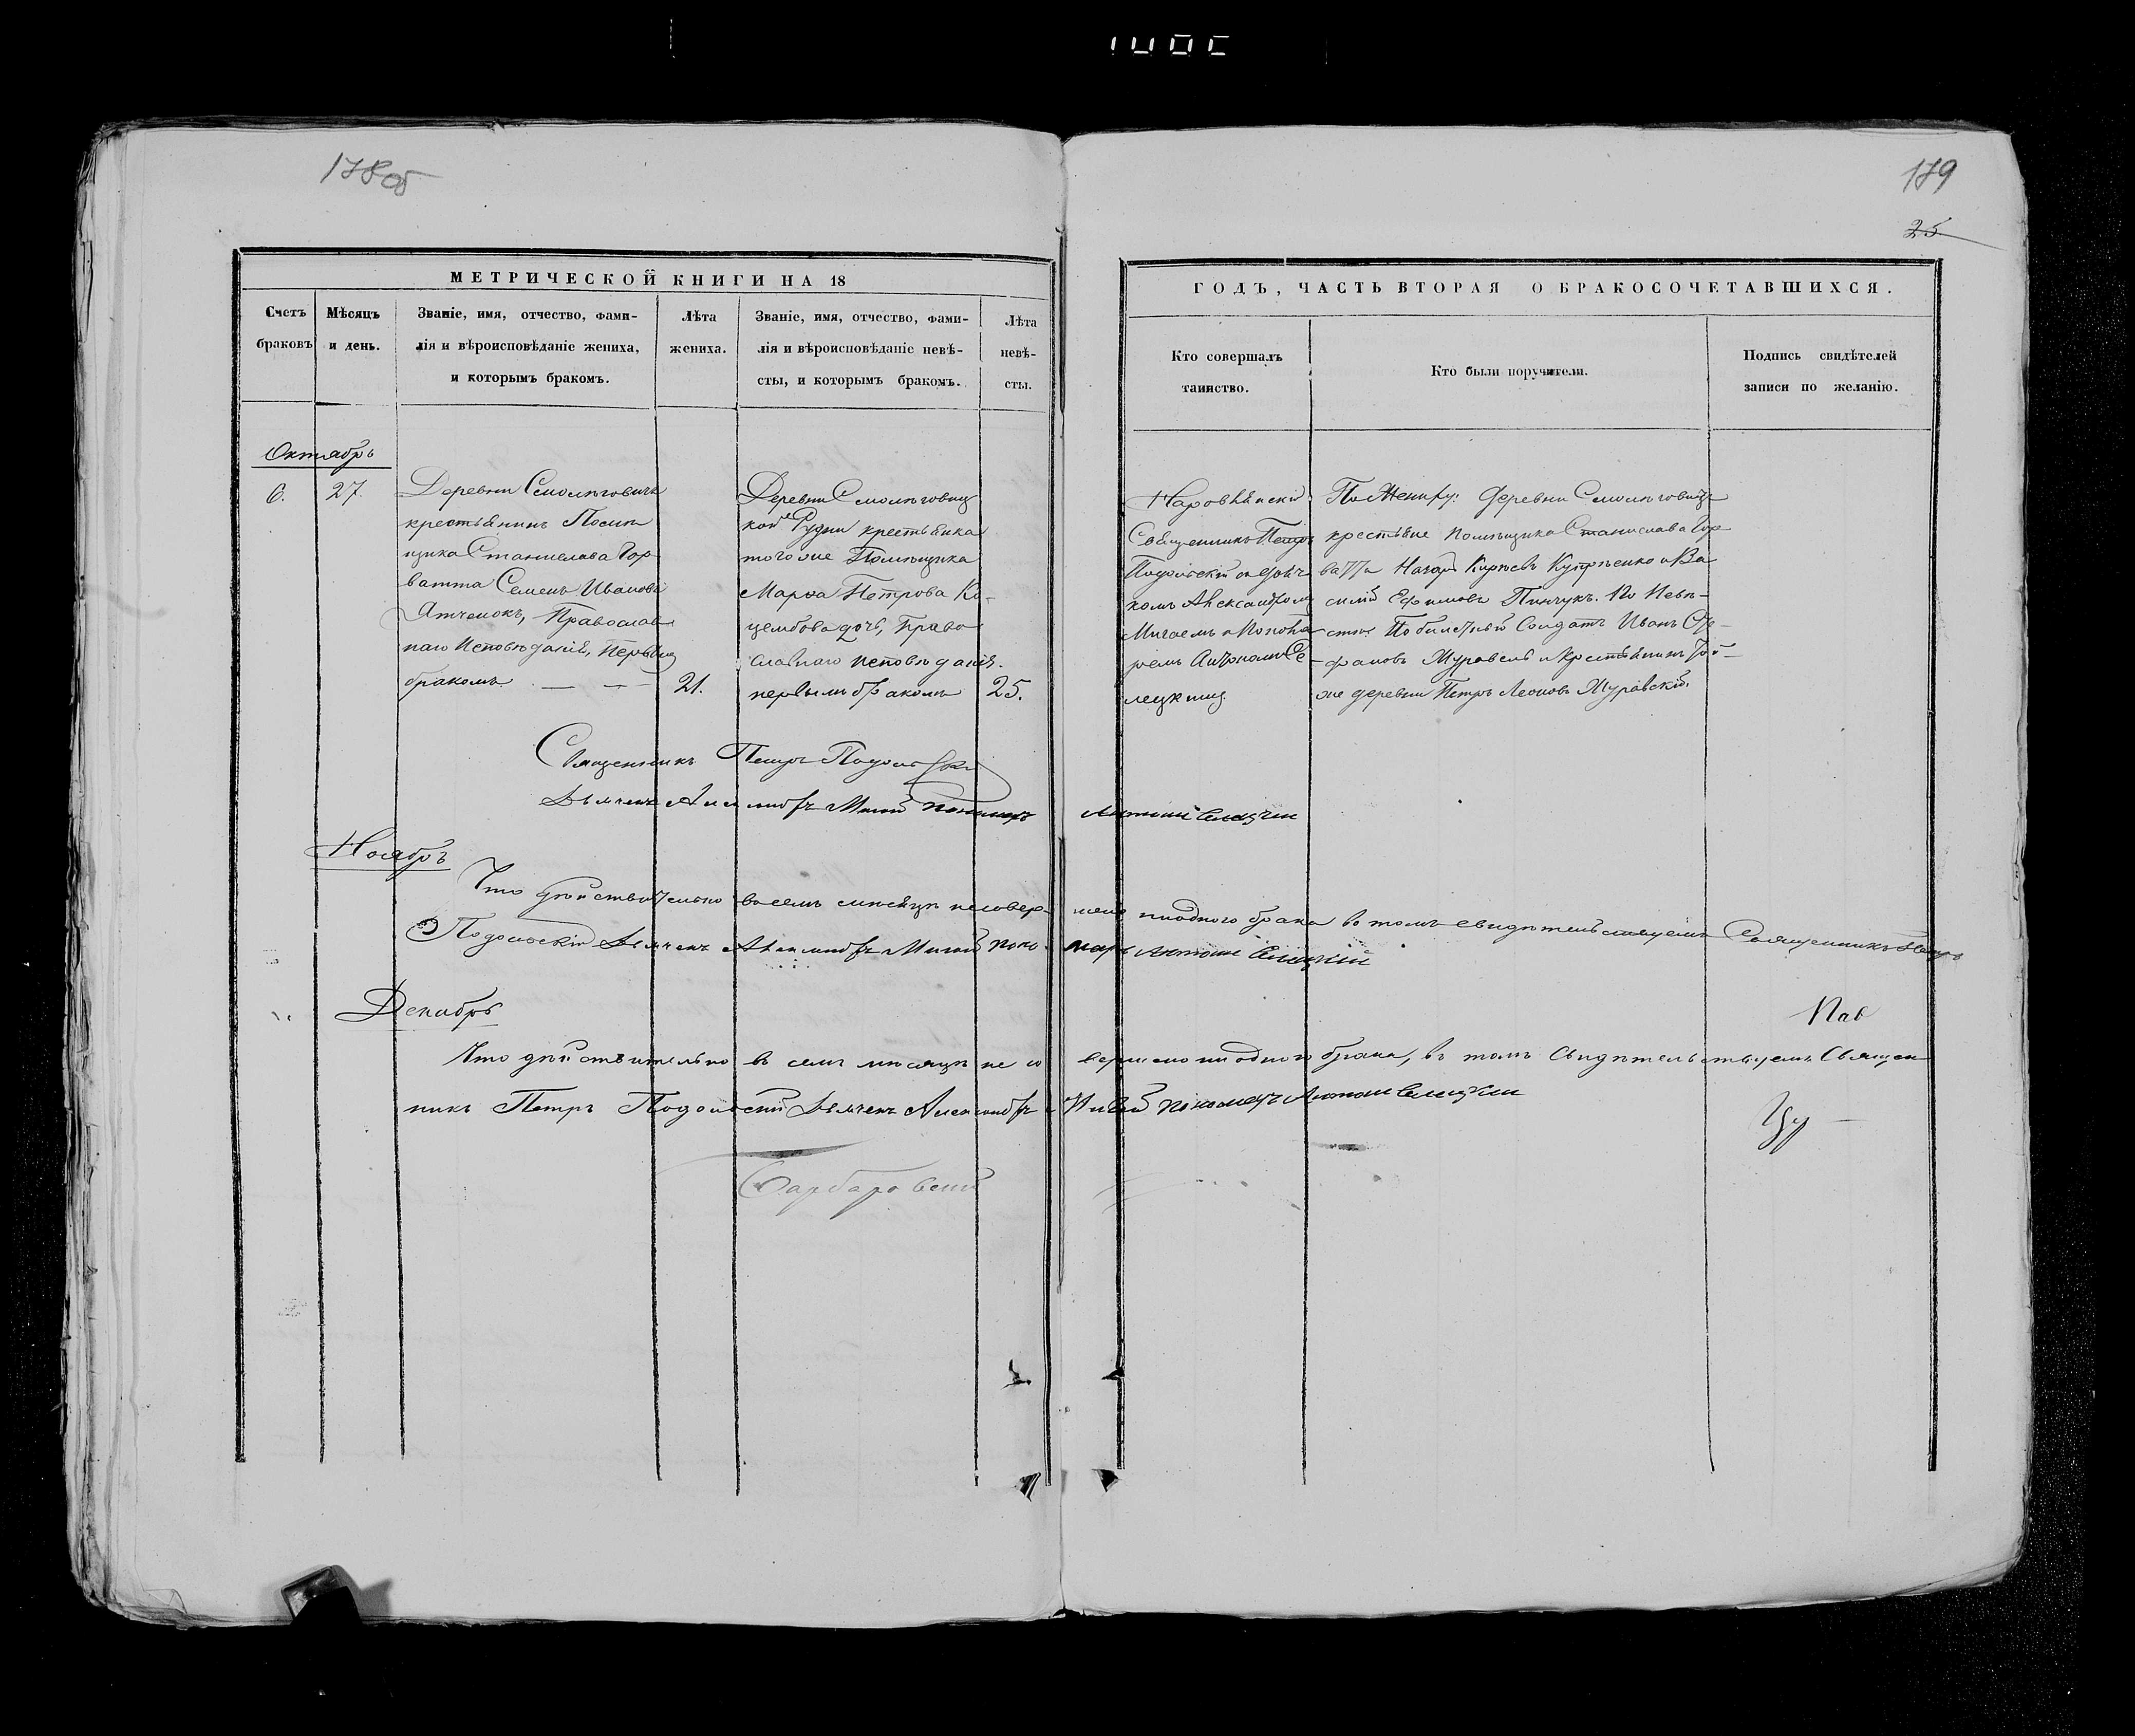 178 об
179
25.
МЕТРИЧЕСКОЙ КНИГИ НА 18
ГОДЪ, ЧАСТЬ ВТОРАЯ О БРАКОСОЧЕТАВШИХСЯ.
Счетъ браковъ
Мѣсяцъ и день.
Званіе, имя, отчество, фами-
лія и вѣроисповѣданіе жениха,
и которымъ бракомъ.
Лѣта
жениха.
Званіе, имя, отчество, фами-
лія и вѣроисповѣданіе невѣ-
сты, и которымъ бракомъ.
Лѣта
невѣ-
сты.
Кто совершалъ
таинство.
Кто были поручители.
Подпись свидѣтелей
записи по желанію.
Октябрь
6.
27.
Деревни Смолѣговичь
крестьянинъ Помѣ
щика Станислава Гор
ватта Семенъ Ивановъ
Православ
наго Исповѣданія, Первымъ
бракомъ
21.
Деревни Смолѣговиц
кой Рудни крестьянка
того же Помѣщика
Марѳа Петрова Ко-
дочь, Право
славнаго исповѣданія.
первымъ бракомъ
25.
Наровлянскій
Священникъ Петръ
Подольскій съ дьяч
комъ Александромъ
и Понома
ремъ Антономъ Се
лецкимъ
По Женихѣ: деревни Смолѣговичь
крестьяне помѣщика Станислава Гор
ватта Назаръ Купрѣенко и Ва
силій Ефимовъ Пинчукъ. По Невѣ-
стѣ: Побилетный Солдатъ Иванъ Сте-
фановъ Журавель и крестьянинъ той-
же деревни Петръ Леоновъ Журавскій.
Священникъ Петръ Подольскій
Дьячекъ Александръ Пономарь Антоній Селецкій
Ноябрь
Что дѣйствительно в семъ мѣсяцѣ несовер- шено ниодного брака в томъ свидѣтельствуемъ Священникъ Петръ
Подольскій Дьячекъ Александръ Поно- марь Антоній Селецкій
Декабрь
Что дѣйствительно в семъ мѣсяцѣ не со вершено ни одного брака, въ томъ свидѣтельствуемъ Священ
никъ Петръ Подольскій Дьячекъ Александръ пономарь Антоній Селецкій